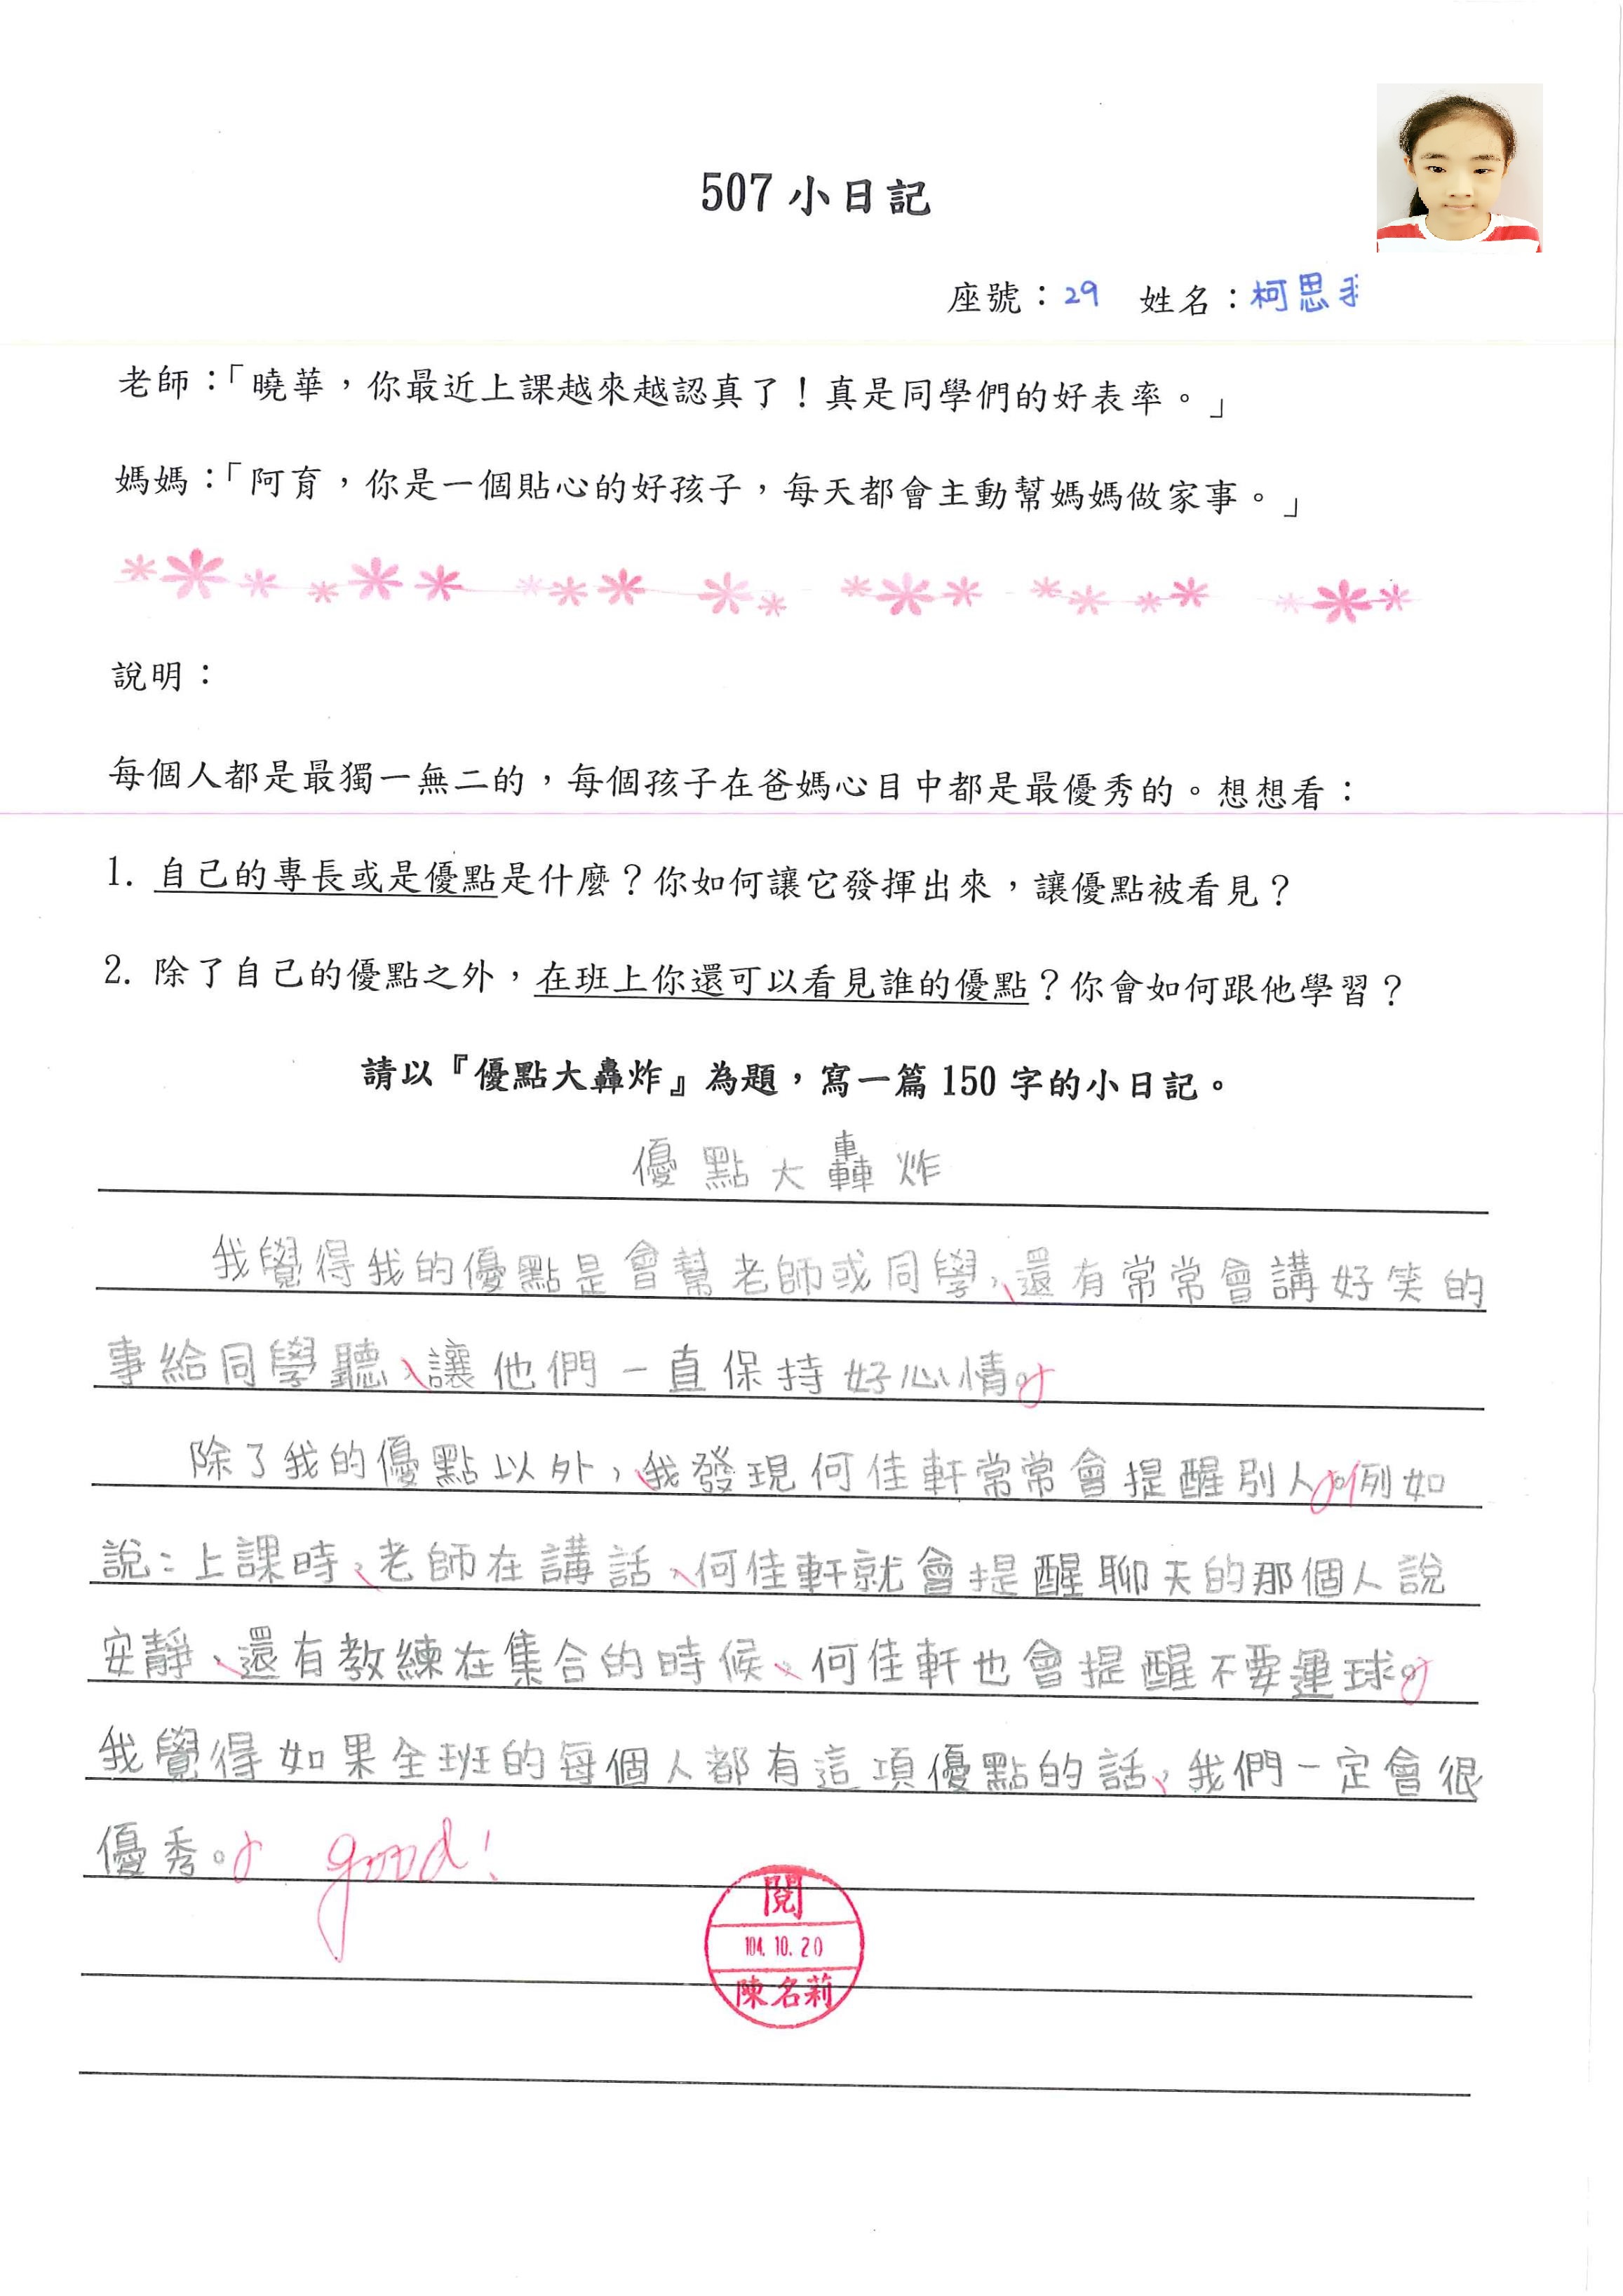 507 小日記
座號：29 姓名：柯思
老師：「曉華，你最近上課越來越認真了！真是同學們的好表率。」
媽媽：「阿育，你是一個貼心的好孩子，每天都會主動幫媽媽做家事。」
說明：
每個人都是最獨一無二的，每個孩子在爸媽心目中都是最優秀的。想想看：
1. 自己的專長或是優點是什麼？你如何讓它發揮出來，讓優點被看見？
2. 除了自己的優點之外，在班上你還可以看見誰的優點？你會如何跟他學習？
請以『優點大轟炸』為題，寫一篇 150 字的小日記。
優點大轟炸
我覺得我的優點是會幫老師或同學、還有常常會講好笑的
事給同學聽、讓他們一直保持好心情。
除了我的優點以外，我發現何佳軒常常會提醒別人。例如
說：上課時、老師在講話、何佳軒就會提醒聊天的那個人說
安靜、還有教練在集合的時候、何佳軒也會提醒不要運球。
我覺得如果全班的每個人都有這項優點的話、我們一定會很
優秀。 good!
閱
104.10.20
陳名莉